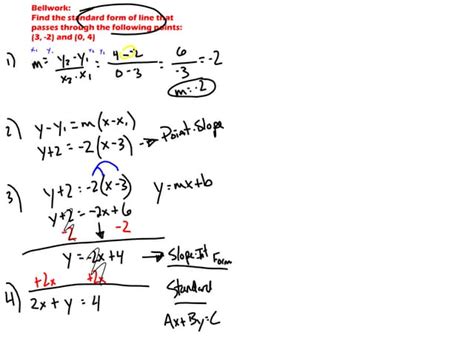 Bellwork:
Find the standard form of line that
passes through the following points:
(3, -2) and (0, 4)
x₁ y₁ x₂ y₂
1) m = y₂-y₁/x₂-x₁ = 4--2/0-3 = 6/-3 = -2
m=-2
2) y-y₁=m(x-x₁)
y+2=-2(x-3) → Point-Slope
3) y+2=-2(x-3) y=mx+b
y+2=-2x+6
-2 -2
y=-2x+4 → Slope-Int Form
+2x +2x
4) 2x+y=4 Standard
Ax+By=C